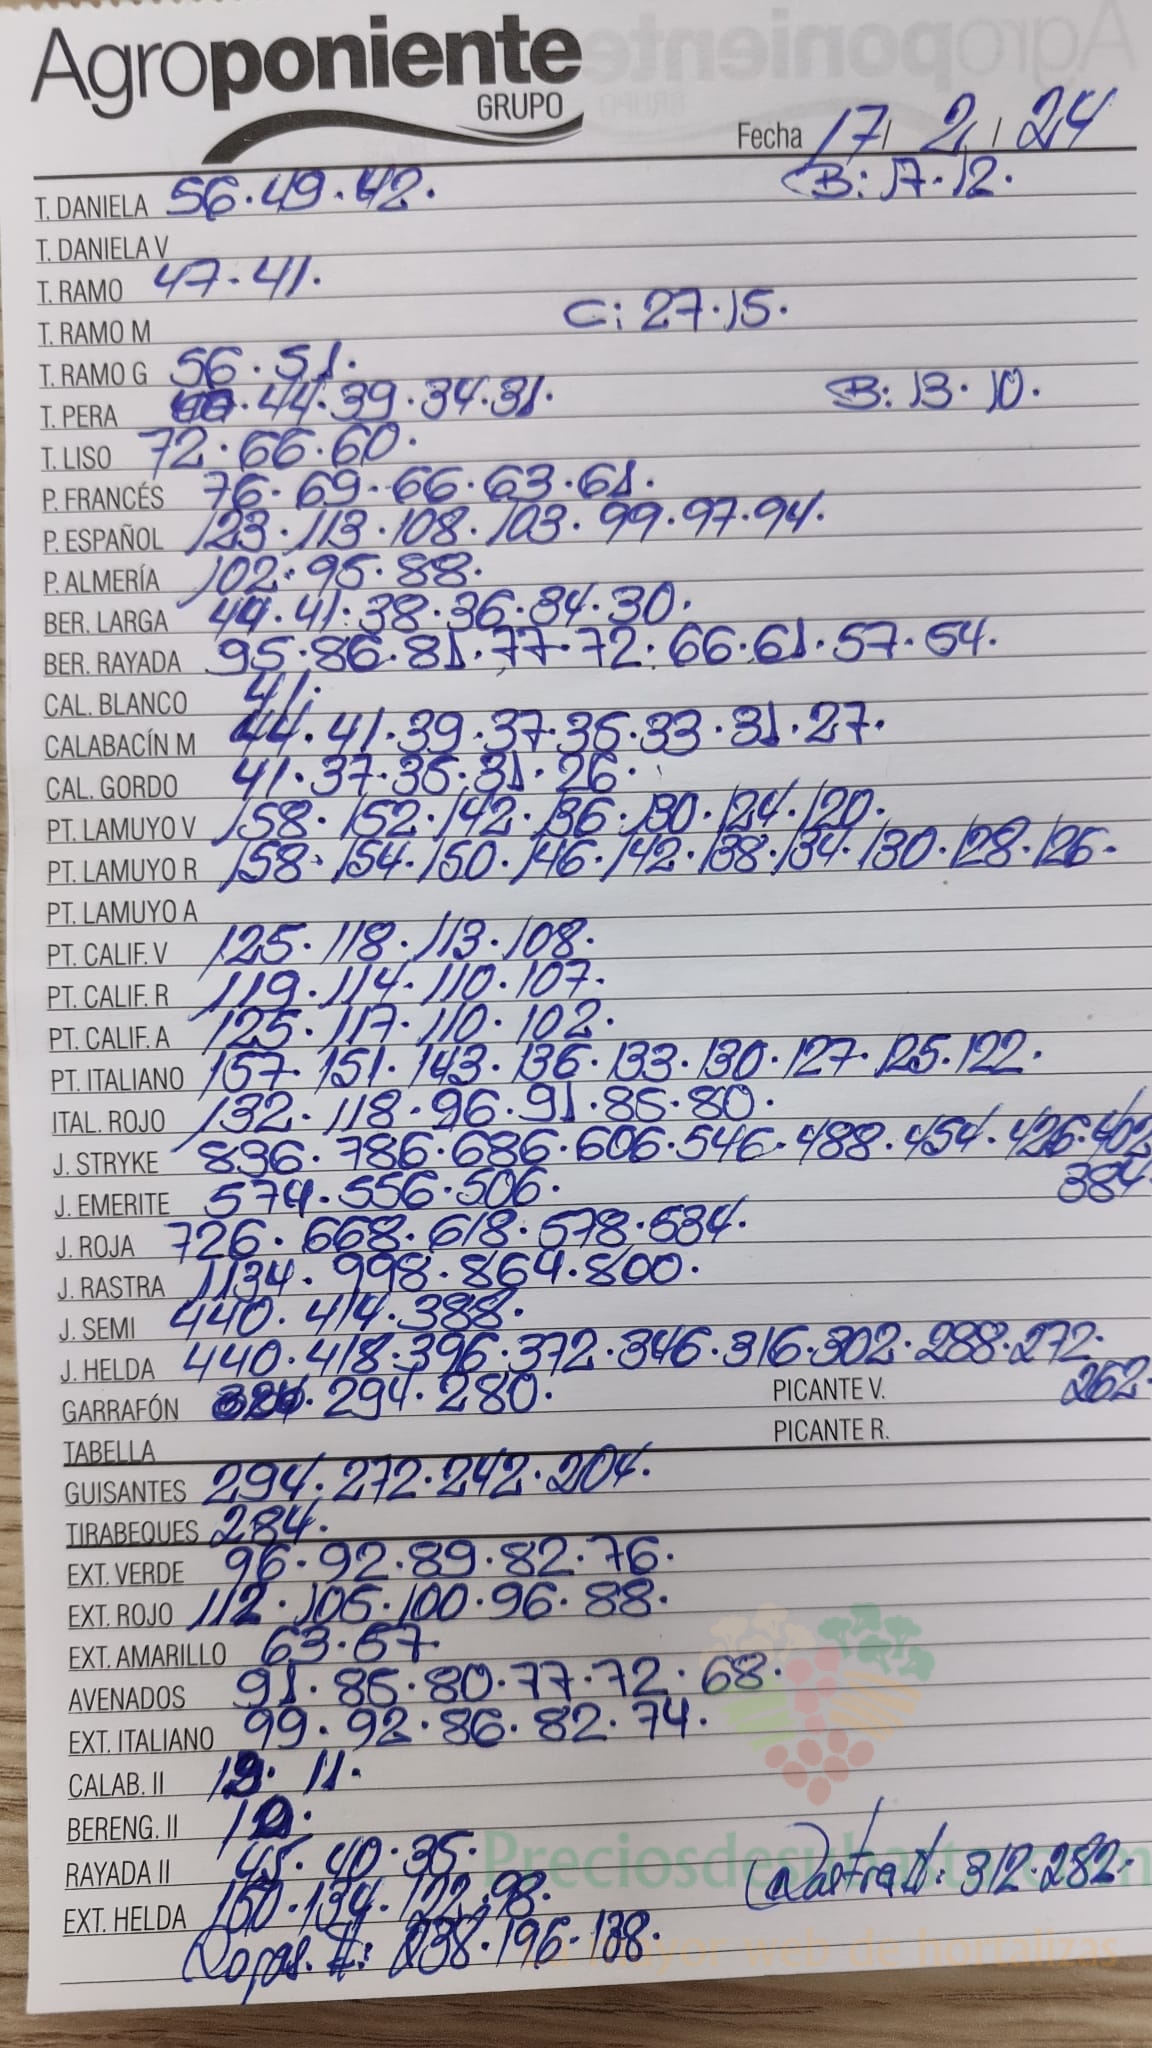 Agroponiente
GRUPO
Fecha 17/ 2 / 24
T. DANIELA 56·49·42· B: 17·12·
T. DANIELA V
T. RAMO 47·41·
T. RAMO M C: 27·15·
T. RAMO G 56·51·
T. PERA 44·39·34·31· B: 13·10·
T. LISO 72·66·60·
P. FRANCÉS 76·69·66·63·61·
P. ESPAÑOL 123·113·108·103·99·97·94·
P. ALMERÍA 102·95·88·
BER. LARGA 44·41·38·36·34·30·
BER. RAYADA 95·86·81·77·72·66·61·57·54·
CAL. BLANCO 41·
CALABACÍN M 44·41·39·37·35·33·31·27·
CAL. GORDO 41·37·35·31·26·
PT. LAMUYO V 158·152·142·136·130·124·120·
PT. LAMUYO R 158·154·150·146·142·138·134·130·128·126·
PT. LAMUYO A
PT. CALIF. V 125·118·113·108·
PT. CALIF. R 119·114·110·107·
PT. CALIF. A 125·117·110·102·
PT. ITALIANO 157·151·143·136·133·130·127·125·122·
ITAL. ROJO 132·118·96·91·85·80·
J. STRYKE 896·786·686·606·546·488·454·426·402
J. EMERITE 574·556·506· 384·
J. ROJA 726·668·618·578·534·
J. RASTRA 1134·998·864·800·
J. SEMI 440·414·388·
J. HELDA 440·418·396·372·346·316·302·288·272·
GARRAFÓN 294·280· PICANTE V. 262·
TABELLA PICANTE R.
GUISANTES 294·272·242·204·
TIRABEQUES 284·
EXT. VERDE 96·92·89·82·76·
EXT. ROJO 112·105·100·96·88·
EXT. AMARILLO 63·57·
AVENADOS 91·85·80·77·72·68·
EXT. ITALIANO 99·92·86·82·74·
CALAB. II 11·
BERENG. II
RAYADA II 45·40·35· 312·282·
EXT. HELDA 150·134·122·98·
Rojas. II: 238·196·138·
Preciosdesubasta.com
La mayor web de hortalizas